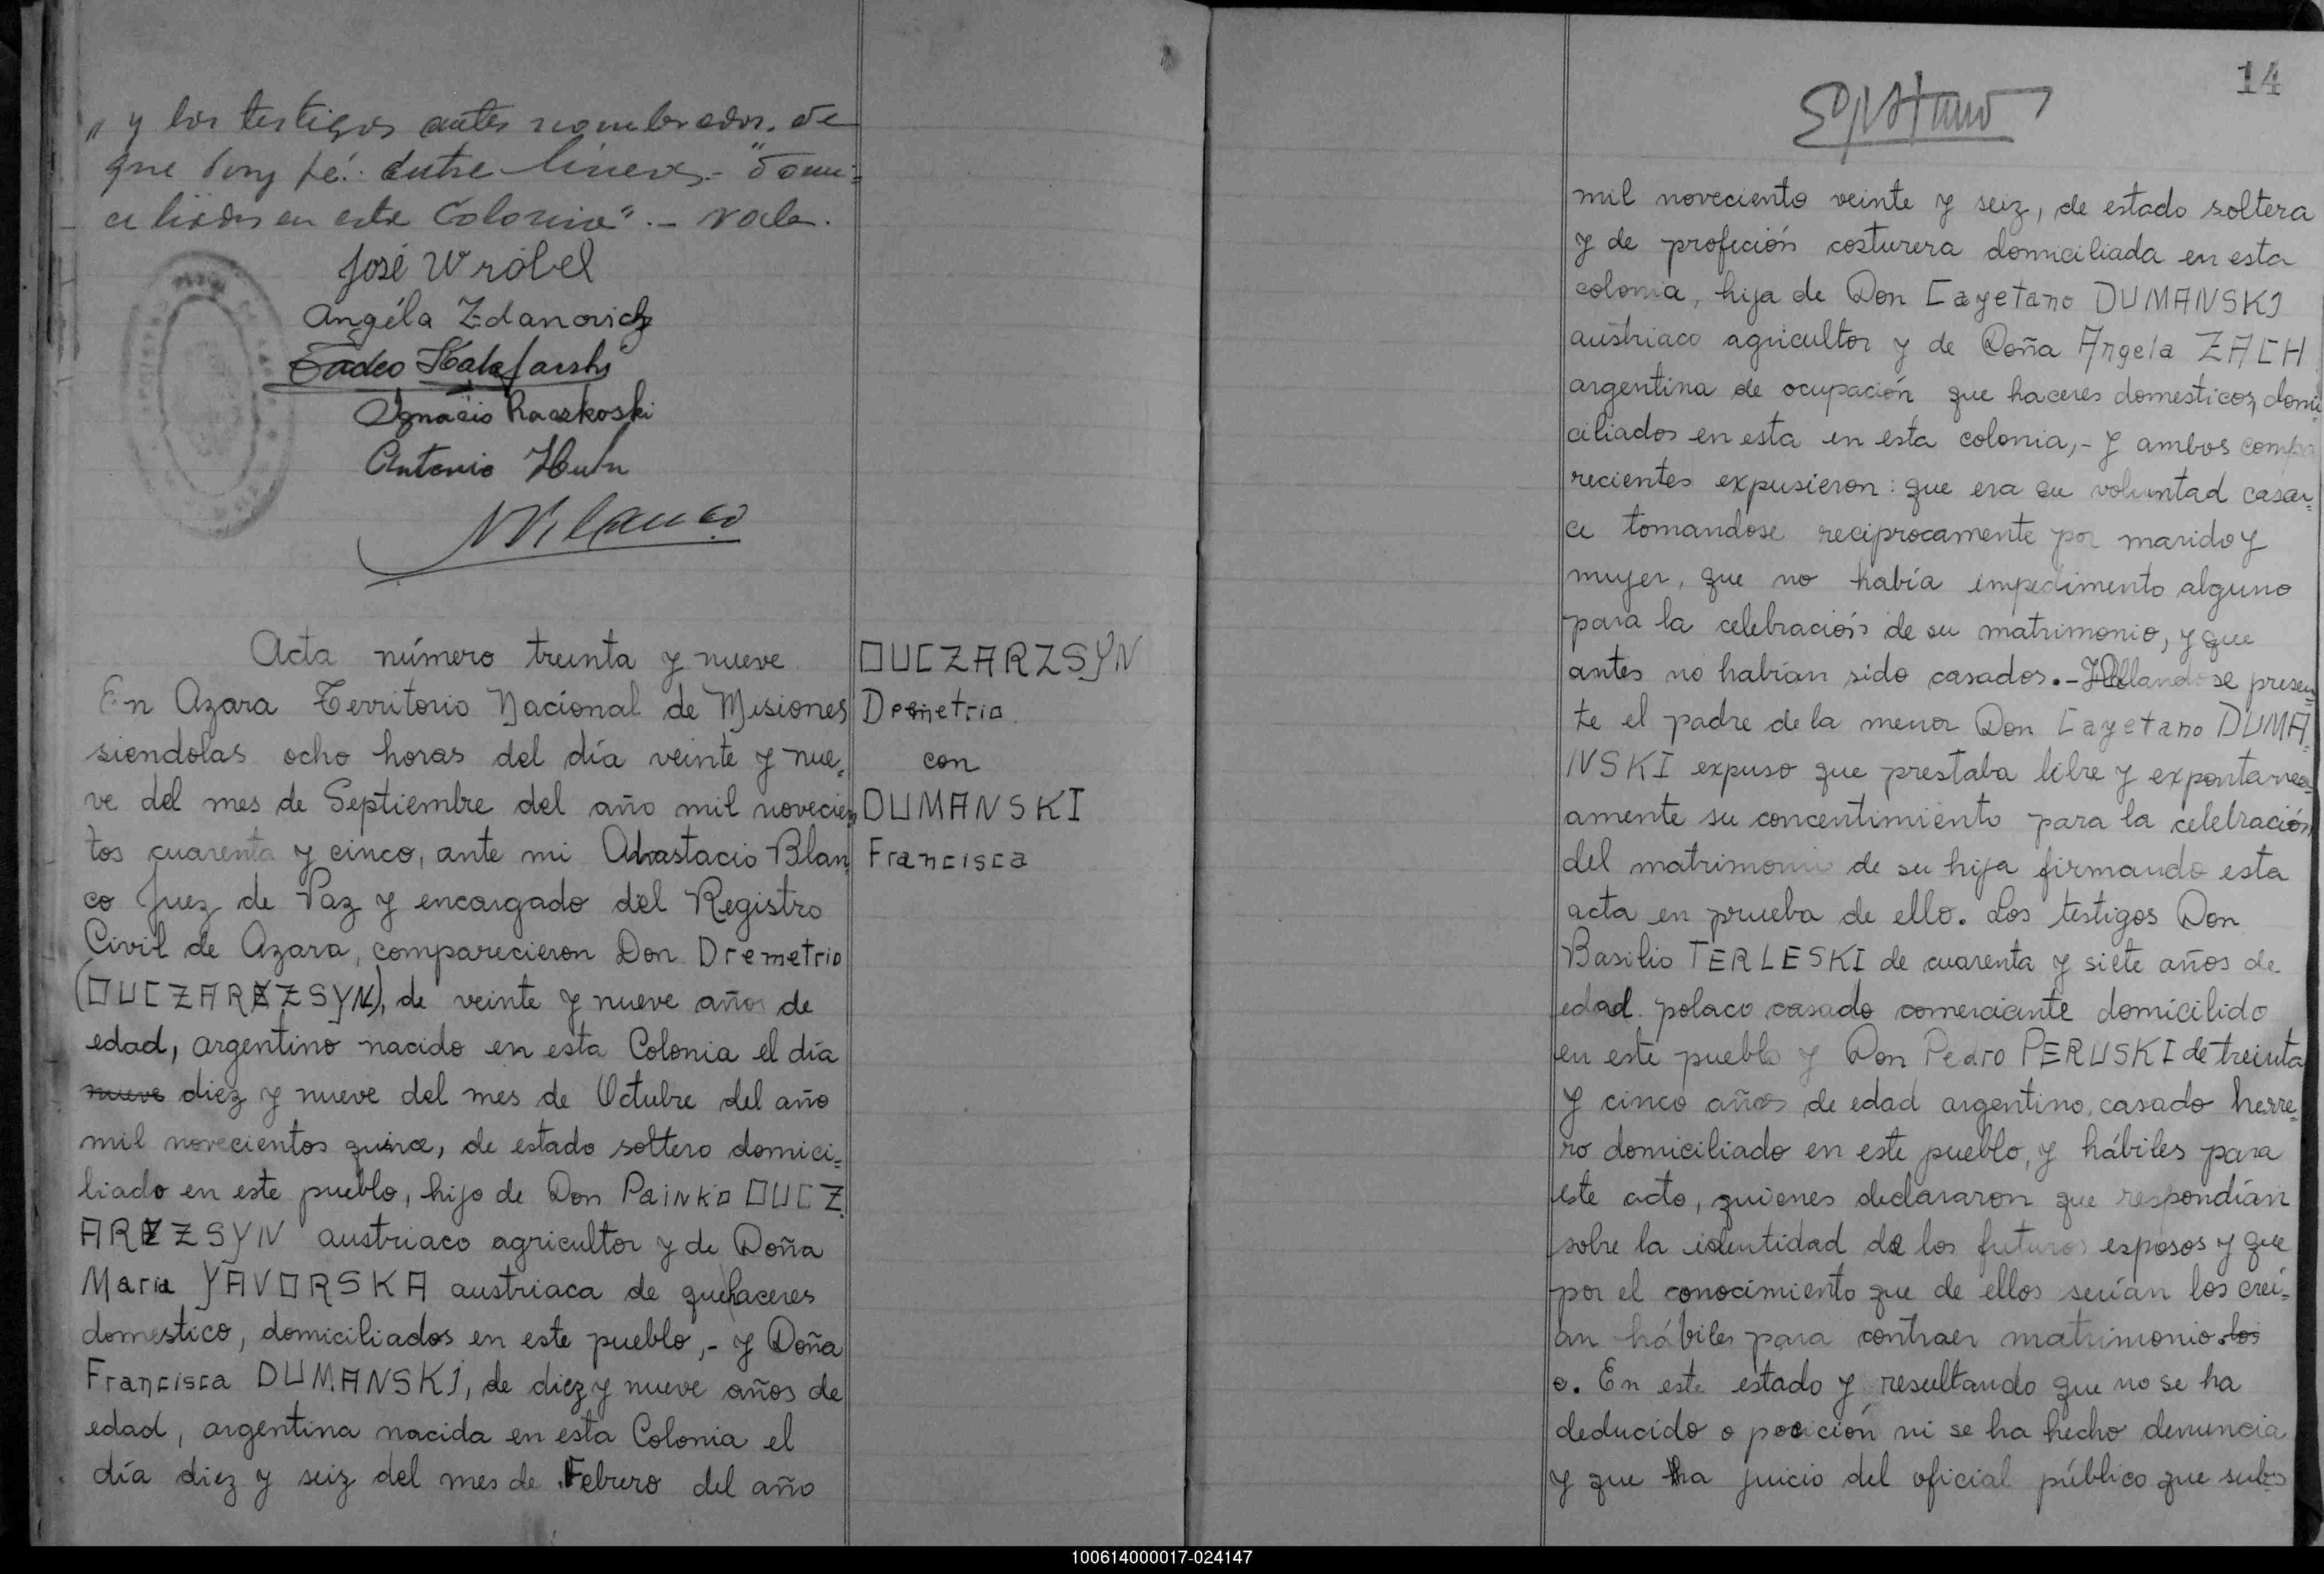 " y los testigos antes nombrados. de
que doy fé: Entre líneas - "domi=
ciliados en esta Colonia" .- vale.
José Wróbel
Angéla Zdanovich
Tadeo
Ignacio Raczkoski
Antonio
Acta número treinta y nueve
En Azara Territorio Nacional de Misiones
siendolas ocho horas del día veinte y nue=
ve del mes de Septiembre del año mil novecien
tos cuarenta y cinco, ante mi Anastacio Blan
co Juez de Paz y encargado del Registro
Civil de Azara, comparecieron Don Dremetrio
(OUCZARZSYN), de veinte y nueve años de
edad, argentino nacido en esta Colonia el día
nueve diez y nueve del mes de Octubre del año
mil novecientos quince, de estado soltero domici=
liado en este pueblo, hijo de Don Painko OUCZ
ARZSYN austriaco agricultor y de Doña
Maria YAVORSKA austriaca de quehaceres
domestico, domiciliados en este pueblo,- y Doña
Francisca DUMANSKI, de diez y nueve años de
edad, argentina nacida en esta Colonia el
día diez y seiz del mes de Febrero del año
OUCZARZSYN
Demetrio
con
DUMANSKI
Francisca
14
mil noveciento veinte y seiz, de estado soltera
y de profeción costurera domiciliada en esta
colonia, hija de Don Cayetano DUMANSKI
austriaco agricultor y de Doña Angela ZACH
argentina de ocupación que haceres domesticos, domi
ciliados en esta en esta colonia,- y ambos compa
recientes expusieron: que era su voluntad casar=
ce tomandose reciprocamente por marido y
mujer, que no había impedimento alguno
para la celebración de su matrimonio, y que
antes no habían sido casados.- Hallandose presen
te el padre de la menor Don Cayetano DUMA
NSKI expuso que prestaba libre y expontanea
amente su concentimiento para la celebración
del matrimonio de su hija firmando esta
acta en prueba de ello. Los testigos Don
Basilio TERLESKI de cuarenta y siete años de
edad polaco casado comerciante domicilido
en este pueblo y Don Pedro PERUSKI de treinta
y cinco años de edad argentino, casado herre=
ro domiciliado en este pueblo, y hábiles para
este acto, quienes declararon que respondían
sobre la identidad de los futuros esposos y que
por el conocimiento que de ellos serían los creí=
an hábiles para contraer matrimonio. los
o. En este estado y resultando que no se ha
deducido o posición ni se ha hecho denuncia
y que ha juicio del oficial público que subs
100614000017-024147